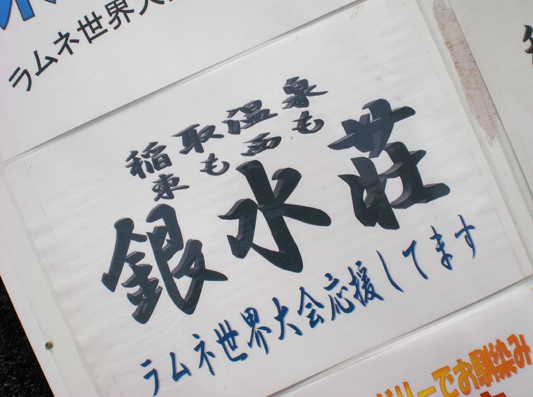 ラムネ世界大
稲取温泉
東も西も
銀水荘
ラムネ世界大会応援してます
リーでお馴染み